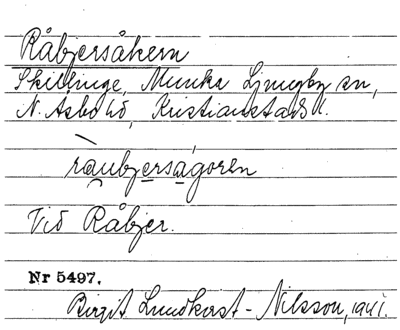 Råbjersåkern
Skillinge, Munka Ljungby sn,
N. Åsbo hd, Kristianstads l.
raubjersagoren
Vid Råbjer.
Nr 5497.
Birgit Lundkvist-Nilsson, 1941.